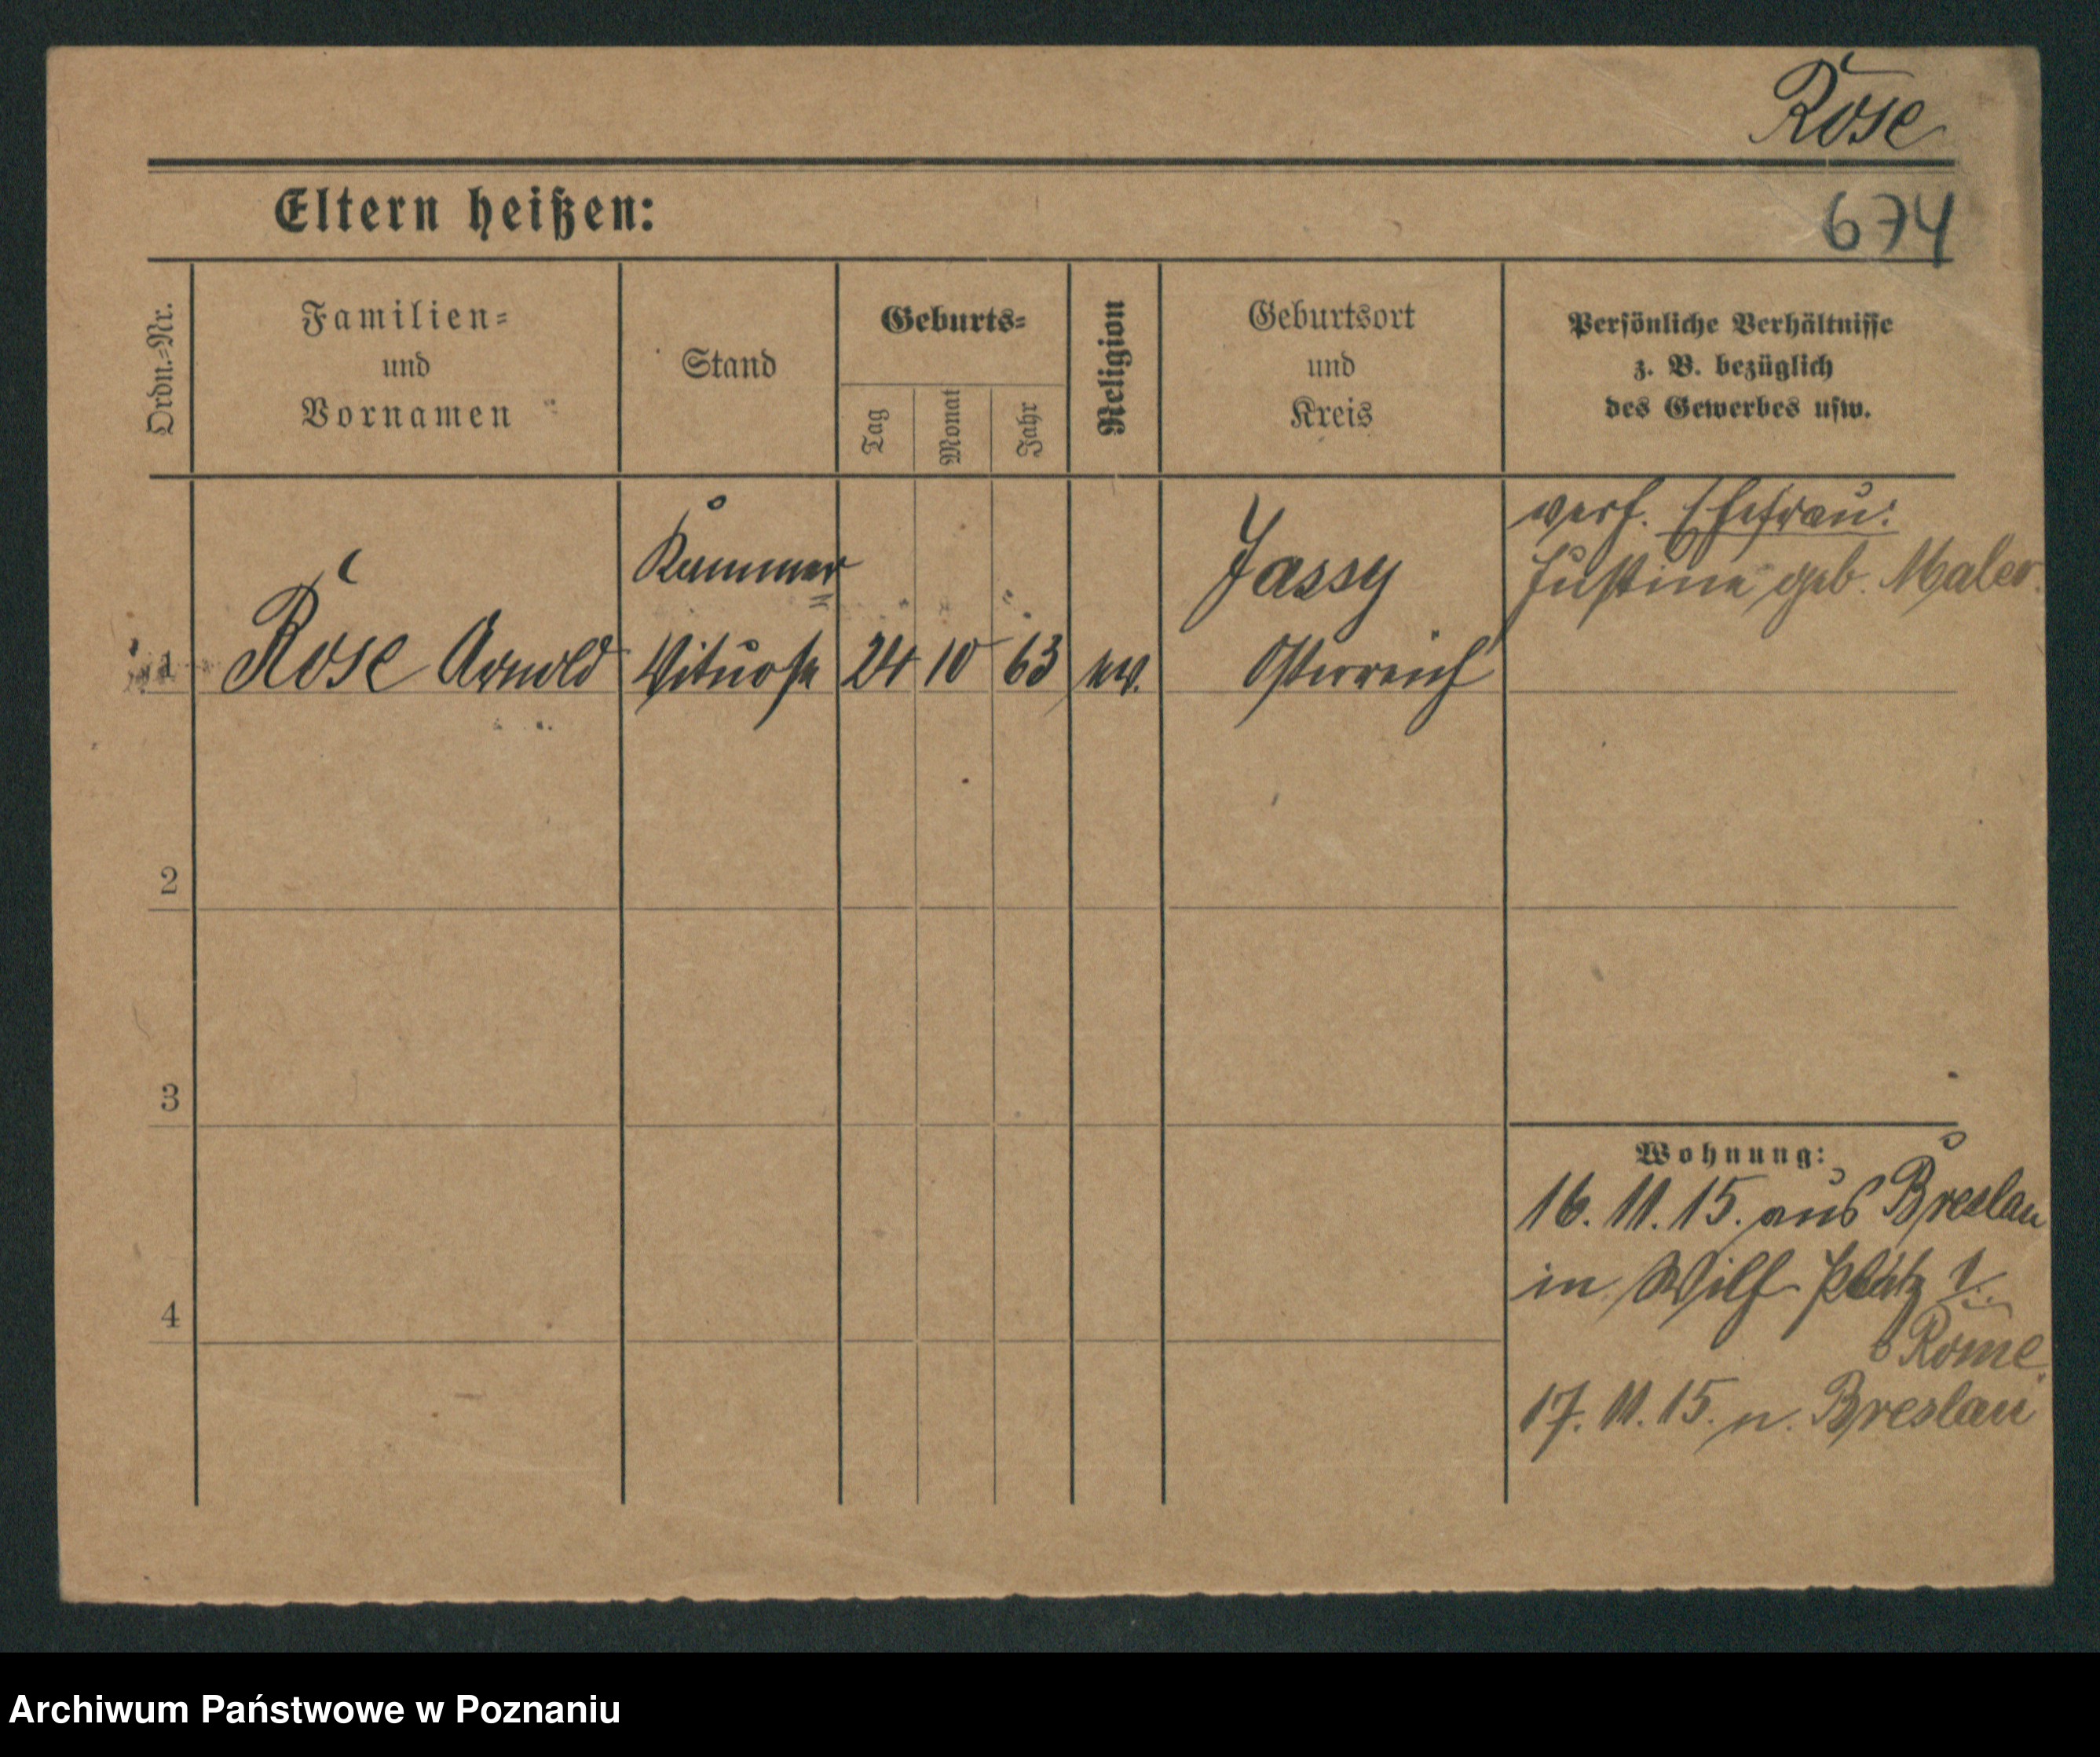 Rose
Eltern heißen:
674
Ordn.-Nr.
Familien-
und
Vornamen
Stand
Geburts-
Tag
Monat
Jahr
Religion
Geburtsort
und
Kreis
Persönliche Verhältnisse
z. B. bezüglich
des Gewerbes usw.
1
Rosé Arnold
Kammer
Vituose
24
10
63
ev.
Jassy
Österreich
verh. Ehefrau:
Justine geb. Maler.
2
3
4
Wohnung:
16.11.15. aus Breslau
in Wilh. Platz 1.
b Rome.
17.11.15. n. Breslau
Archiwum Państwowe w Poznaniu